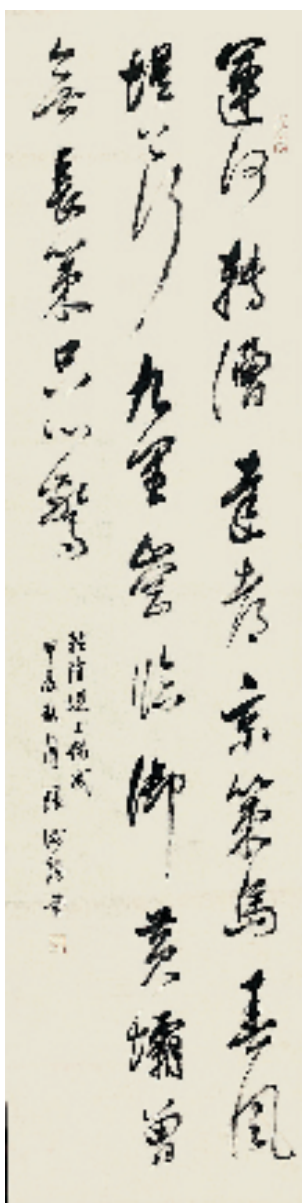 運河轉漕達都京策馬春風
堤上行九里崗臨御黃壩曾
無長策只心驚
乾隆堤上偶成
甲辰秋